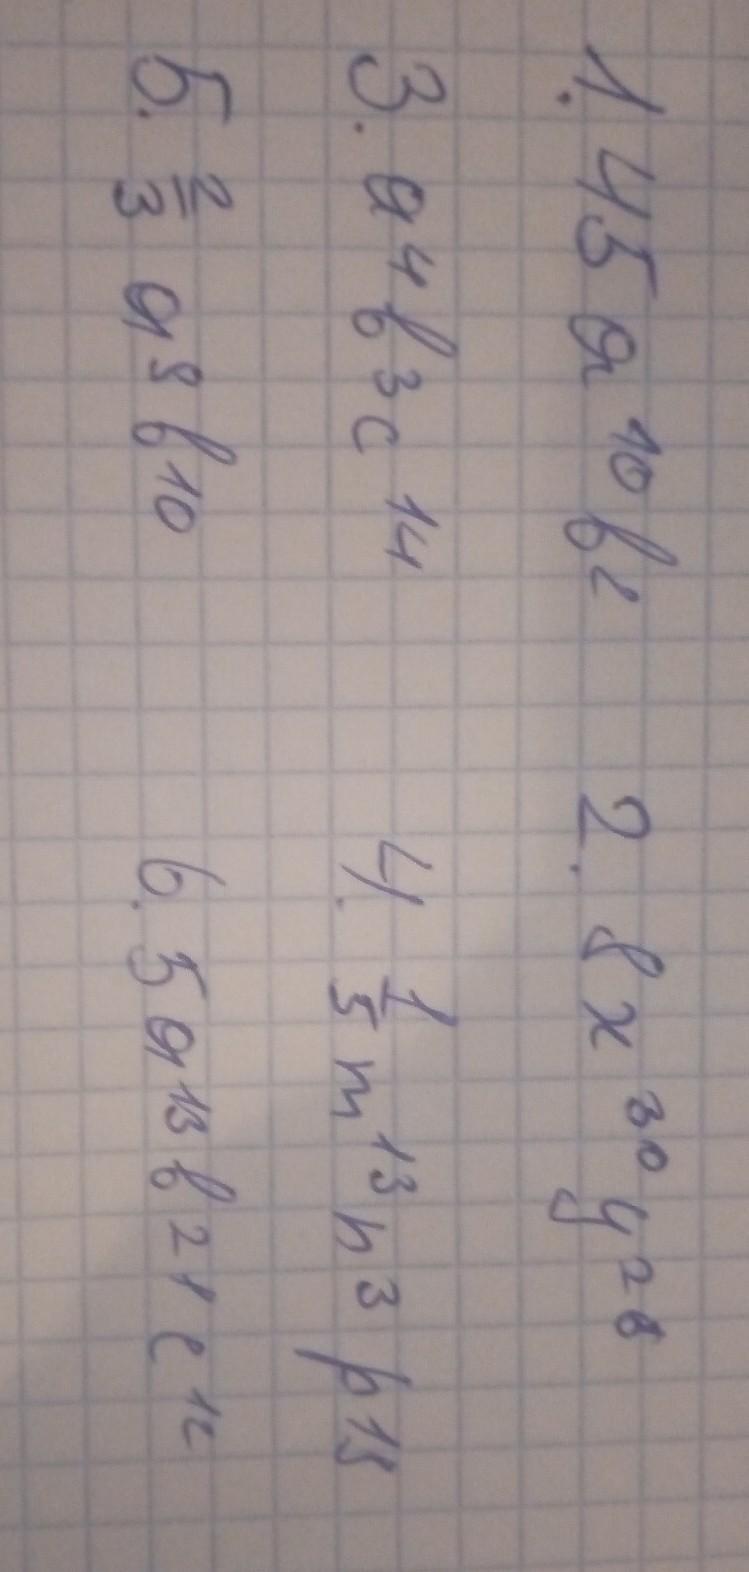 1. 45a¹⁰b² 2. 8x³⁰y²⁸
3. a⁴b³c¹⁴ 4. 1/5 m¹³n³p¹⁵
5. 2/3 a⁸b¹⁰ 6. 5a¹³b²¹c¹²